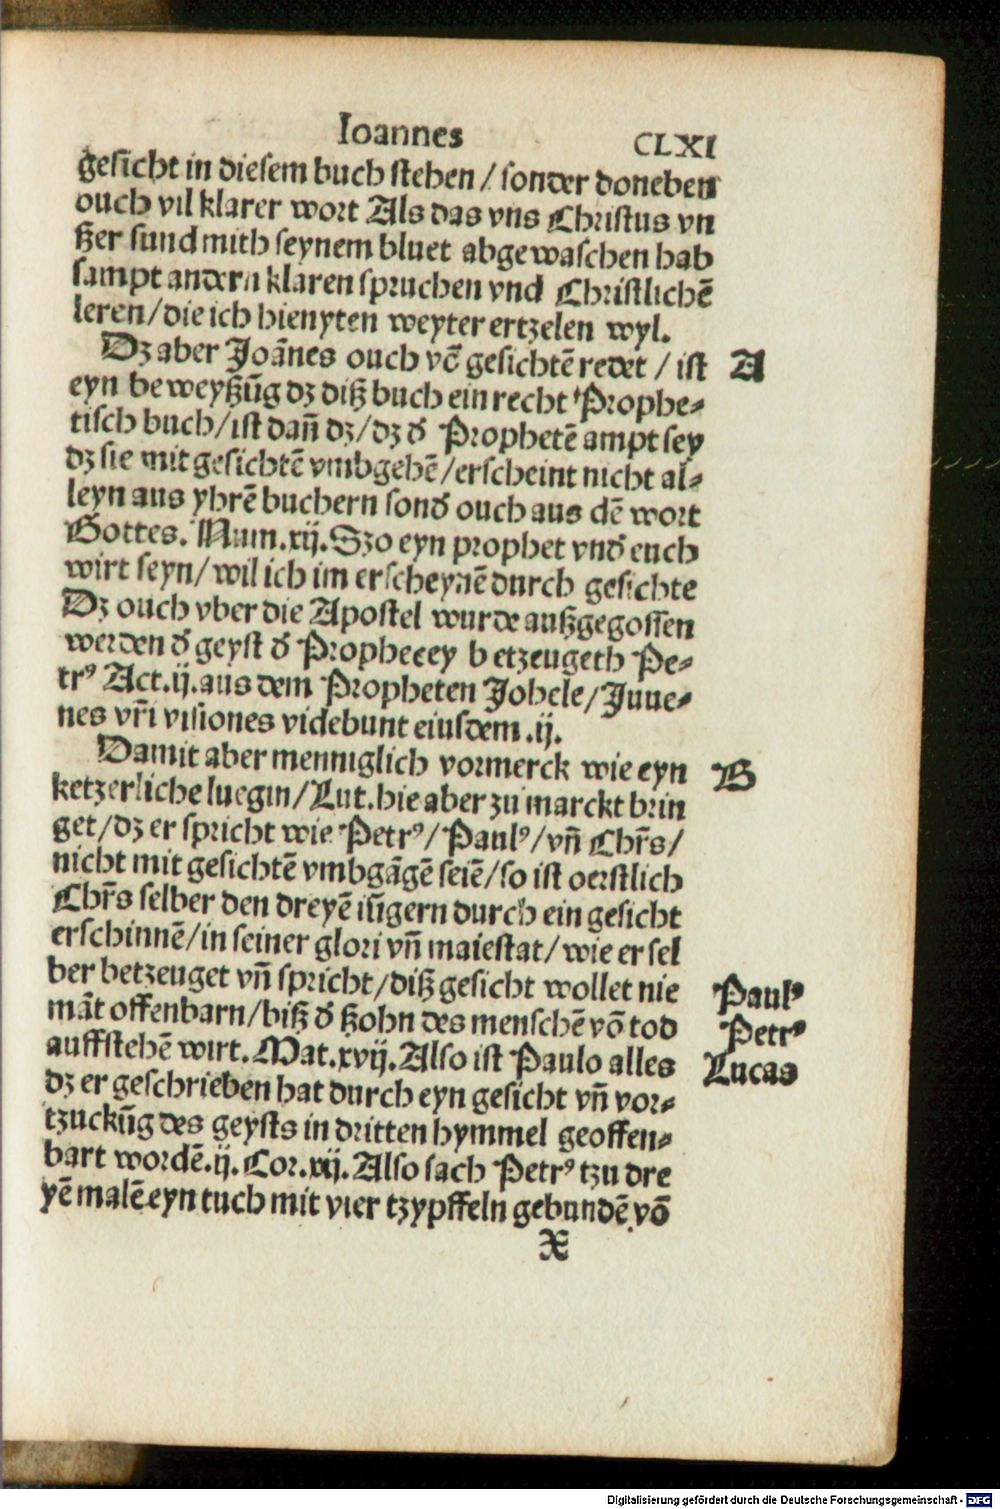 Ioannes CLXI
gesicht in diesem buch stehen / sonder doneben
ouch vil klarer wort Als das vns Christus vn
ßer sund mith seynem bluet abgewaschen hab
sampt andern klaren spruchen vnd Christlichē
leren/die ich hienyten weyter ertzelen wyl.
Dz aber Joānes ouch vō gesichtē redet / ist A
eyn beweyßūg dz diß buch ein recht Prophe-
tisch buch/ist dañ dz/dz d̕ Prophetē ampt sey
dz sie mit gesichtē vmbgehē/erscheint nicht al-
leyn aus yhrē buchern sond̕ ouch aus dē wort
Gottes. Num.xij.Szo eyn prophet vnd̕ euch
wirt seyn/wil ich im erscheynē durch gesichte
Dz ouch vber die Apostel wurde außgegossen
werden d̕ geyst d̕ Prophecey betzeugeth Pe-
trꝰ Act.ij.aus dem Propheten Johele/Juue-
nes vr̄i visiones videbunt eiusdem .ij.
Damit aber menniglich vormerck wie eyn B
ketzerliche luegin/Lut.hie aber zu marckt brin
get/dz er spricht wie Petrꝰ/Paulꝰ/vñ Chr̄s/
nicht mit gesichtē vmbgāgē seiē/so ist oerstlich
Chr̄s selber den dreyē iūgern durch ein gesicht
erschinnē/in seiner glori vñ maiestat/wie er sel
ber betzeuget vñ spricht/diß gesicht wollet nie
māt offenbarn/biß d̕ ßohn des menschē vō tod
auffstehē wirt.Mat.xvij.Also ist Paulo alles
dz er geschrieben hat durch eyn gesicht vñ vor-
tzuckūg des geysts in dritten hymmel geoffen-
bart wordē.ij.Cor.xij.Also sach Petrꝰ tzu dre
yē malē eyn tuch mit vier tzypffeln gebundē vō
Paulꝰ
Petrꝰ
Lucas
X
Digitalisierung gefördert durch die Deutsche Forschungsgemeinschaft - DFG